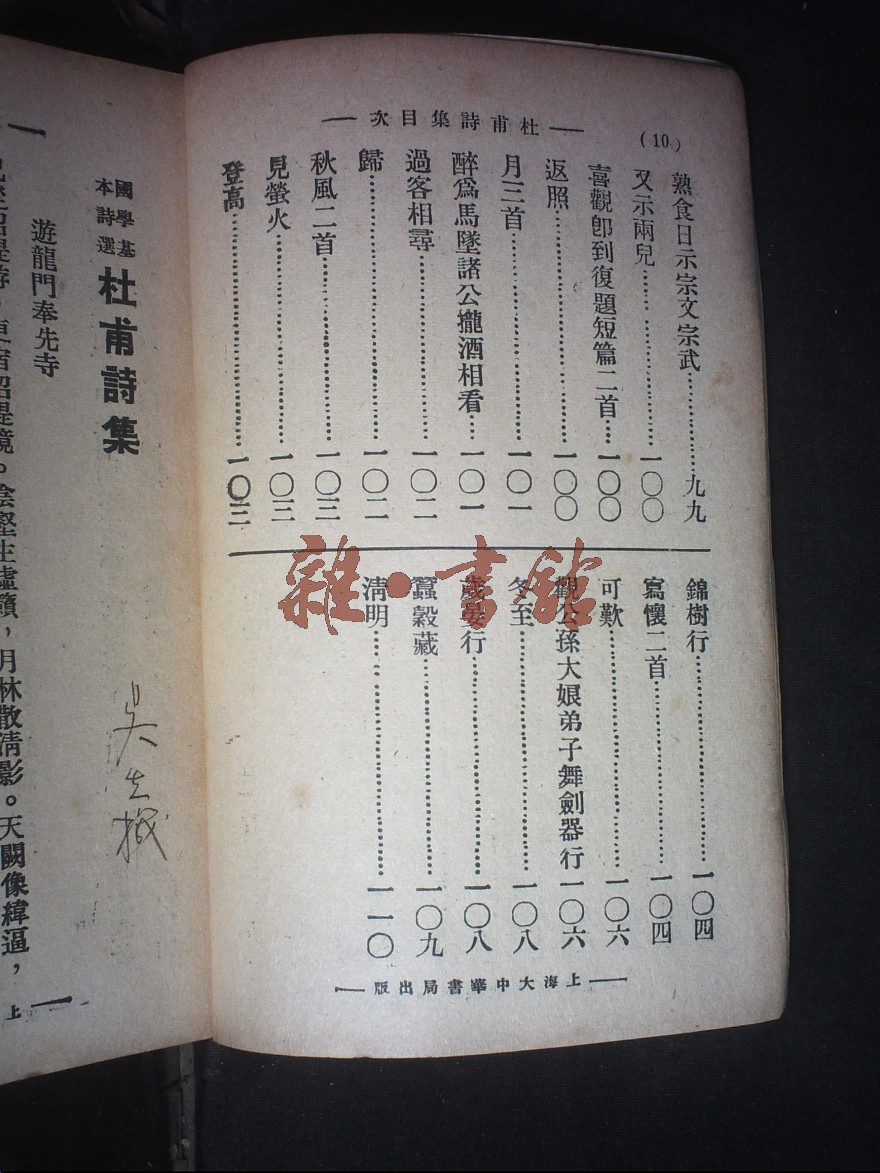 杜甫詩集目次
(10)
熟食日示宗文宗武……九九
又示兩兒……一〇〇
喜觀卽到復題短篇二首……一〇〇
返照……一〇〇
月三首……一〇一
醉爲馬墜諸公攏酒相看……一〇一
過客相尋……一〇二
歸……一〇二
秋風二首……一〇三
見螢火……一〇三
登高……一〇三
錦樹行……一〇四
寫懷二首……一〇四
可歎……一〇六
觀公孫大娘弟子舞劍器行……一〇六
冬至……一〇八
歲晏行……一〇八
蠶穀藏……一〇九
淸明……一一〇
上海大中華書局出版
雜·書館
國學基
本詩選
杜甫詩集
遊龍門奉先寺
陰壑生虛籟，月林散淸影。天闕像緯逼，
上